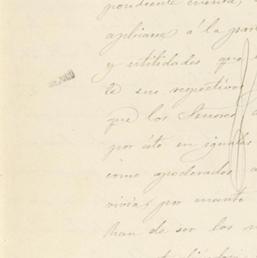 pondiente cuenta,
aplicara á la gran
y utilidades que
te sus respectivos
que los Señores
por éste en iguales
como apoderados
por cuanto
han de ser los